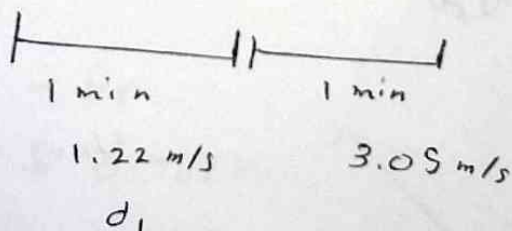 1 min 1 min
1.22 m/s 3.05 m/s
d1